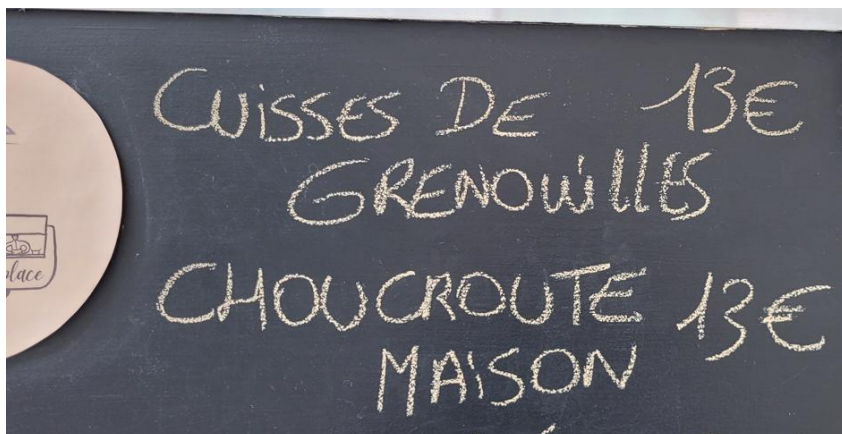 CUISSES DE 13€
GRENOUILLES
CHOUCROUTE 13€
MAISON
place